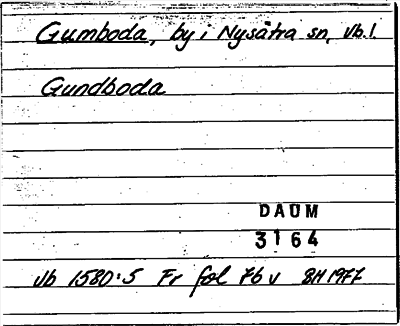 Gumboda, by i Nysätra sn, Vb.l.
Gundboda
DAUM
3164
Vb 1580:5 Fr fol 7b v BH 1977